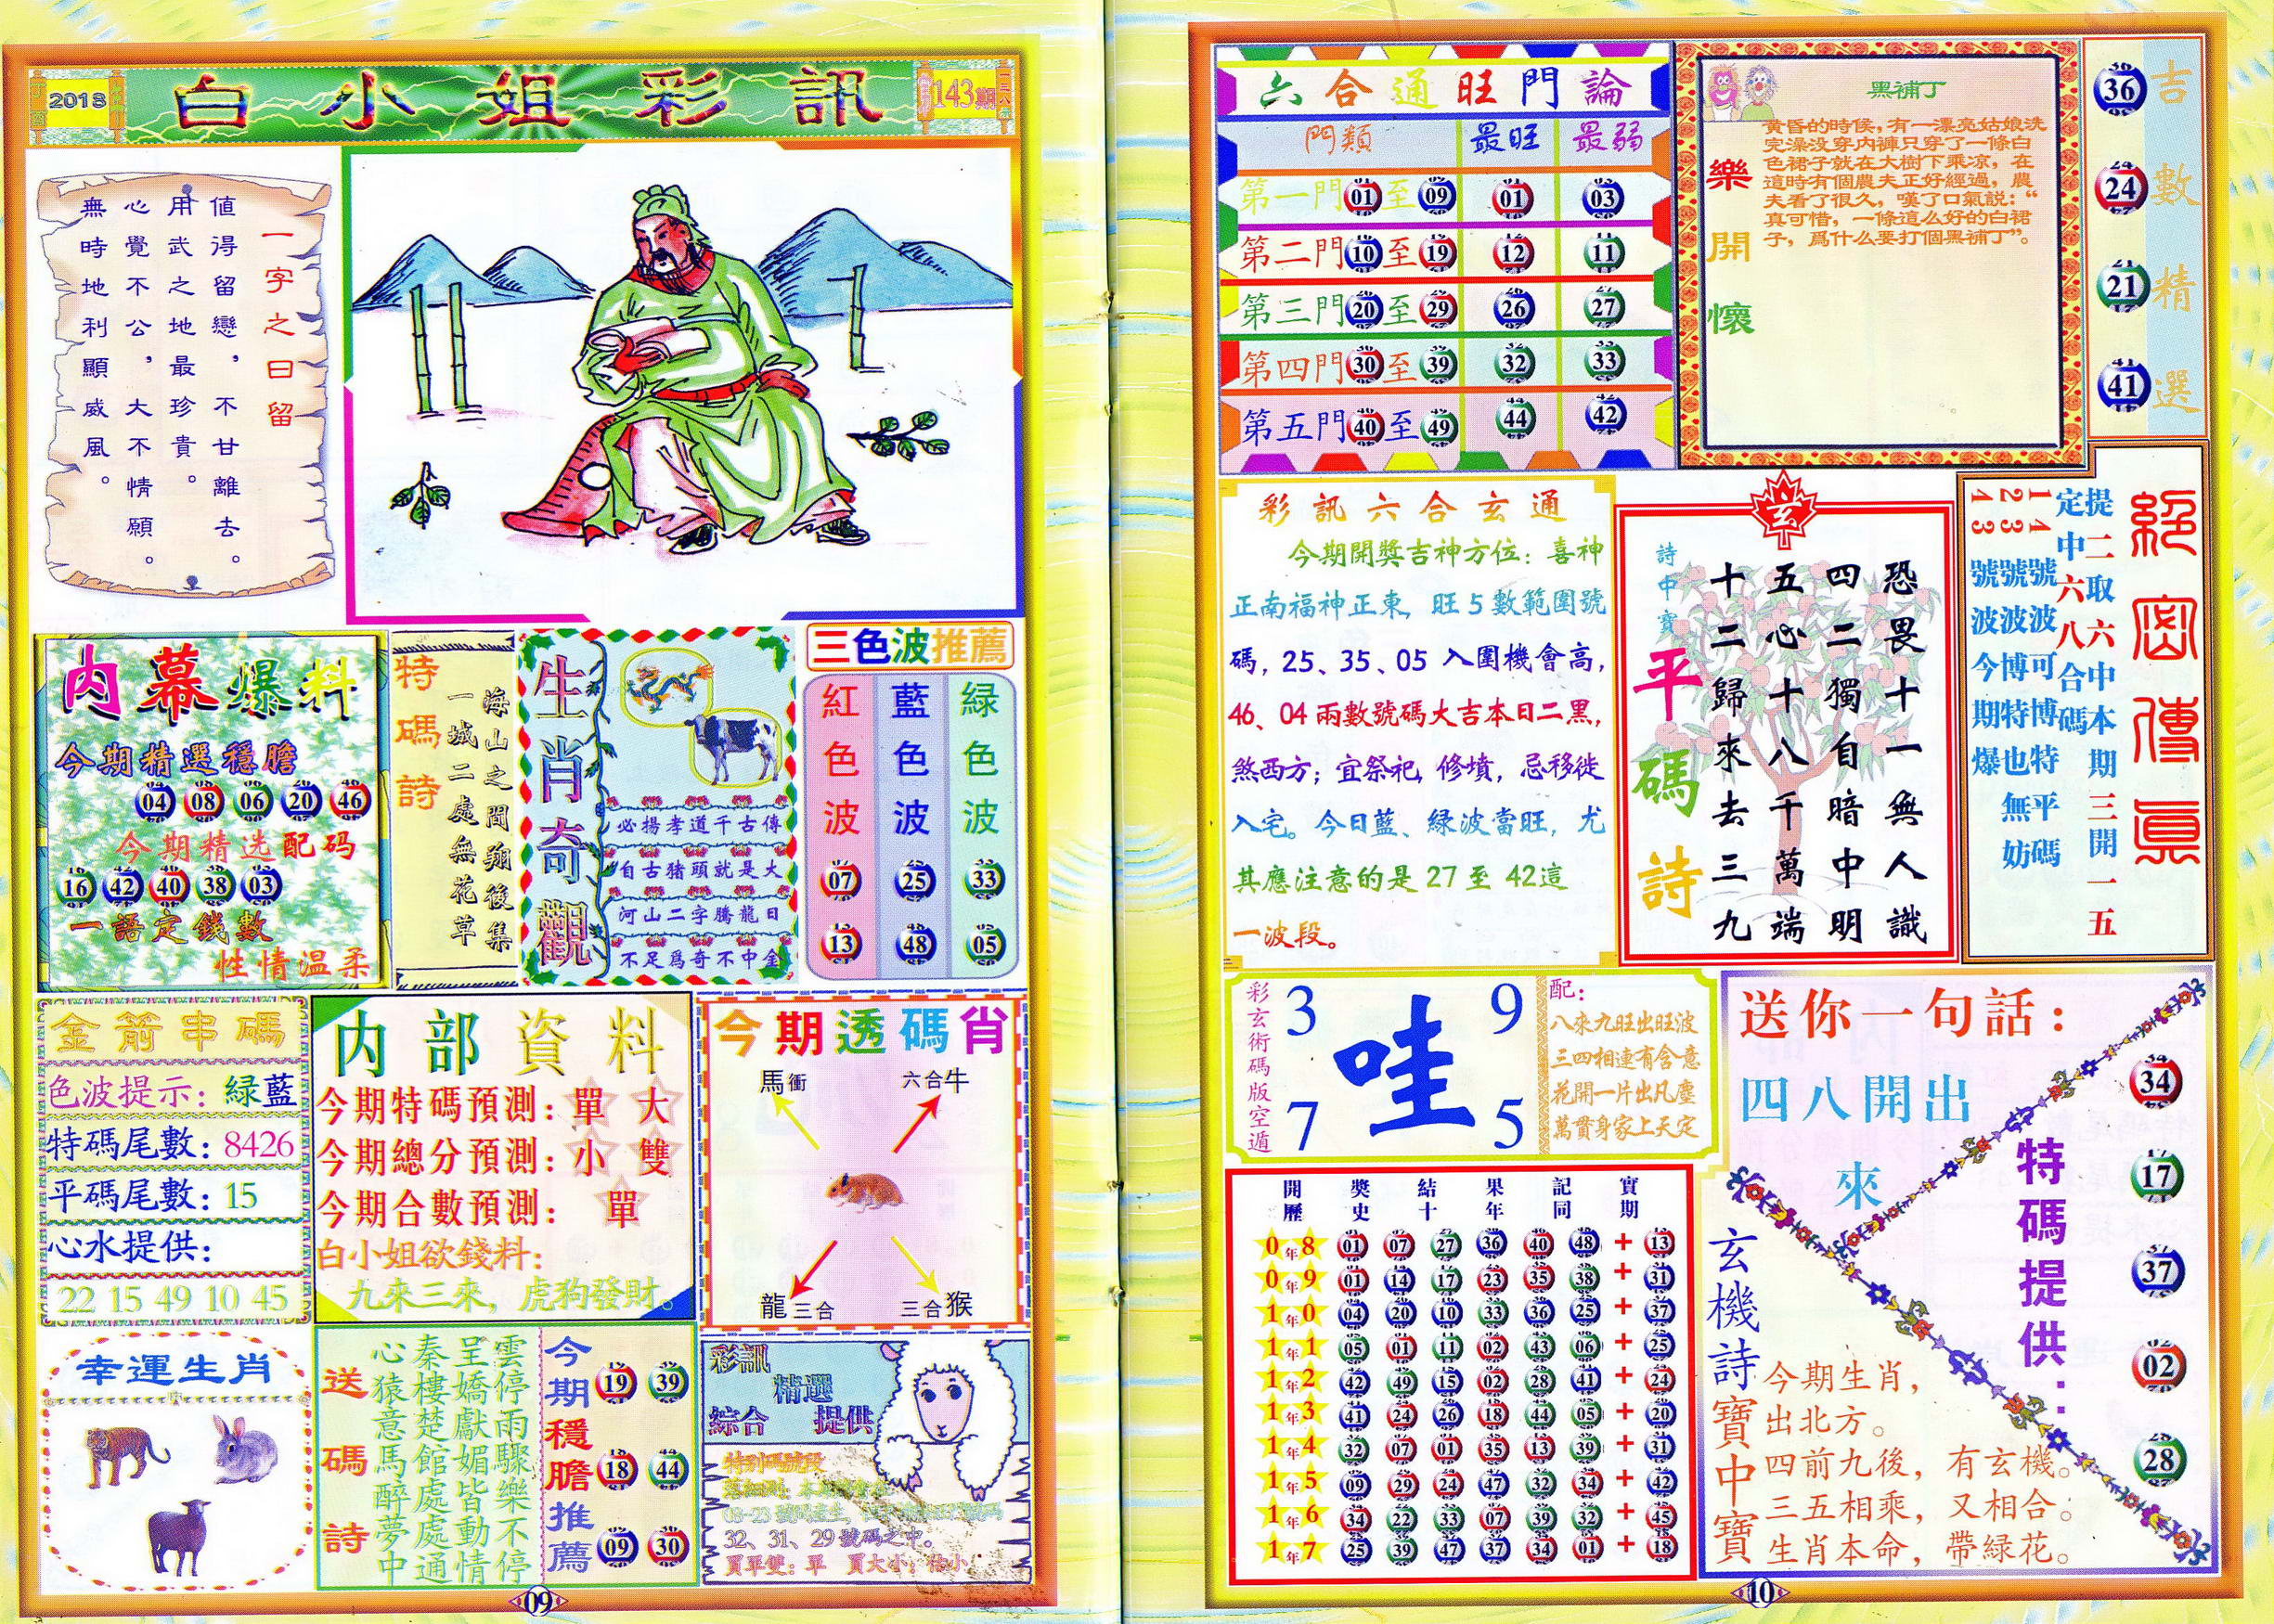 2018
白小姐彩訊
143期
一字之曰留
值得留戀，不甘離去。
用武之地最珍貴。
心覺不公，大不情願。
無時地利顯威風。
内幕爆料
今期精選穩膽
04 08 06 20 46
今期精选配码
16 42 40 38 03
一語定錢數
性情温柔
特碼詩
海山之間翔後集
一城二處無花草
生肖奇觀
必揚孝道千古傳
自古猪頭就是大
河山二字騰龍日
不足爲奇不中金
三色波推薦
紅色波 藍色波 緑色波
07 25 33
13 48 05
金箭串碼
色波提示：緑藍
特碼尾數：8426
平碼尾數：15
心水提供：
22 15 49 10 45
内部資料
今期特碼預測：單 大
今期總分預測：小 雙
今期合數預測：單
白小姐欲錢料：
九來三來，虎狗發財。
今期透碼肖
馬衝 六合牛
龍三合 三合猴
幸運生肖
送碼詩
雲停雨驟樂不停
呈嬌獻媚皆動情
秦樓楚館處處通
心猿意馬醉夢中
今期穩膽推薦
19 39
18 44
09 30
彩訊
精選
綜合 提供
特别碼號段
32、31、29號碼之中。
買單雙：單 買大小：估小
09
六合通旺門論
門類 最旺 最弱
第一門01至09 01 03
第二門10至19 12 11
第三門20至29 26 27
第四門30至39 32 33
第五門40至49 44 42
樂開懷
黑補丁
黄昏的時候，有一漂亮姑娘洗
完澡没穿内褲只穿了一條白
色裙子就在大樹下乘凉，在
這時有個農夫正好經過，農
夫看了很久，嘆了口氣説：“
真可惜，一條這么好的白裙
子，爲什么要打個黑補丁”。
吉數精選
36
24
21
41
彩訊六合玄通
今期開獎吉神方位：喜神
正南福神正東，旺5數範圍號
碼，25、35、05入圍機會高，
46、04兩數號碼大吉本日二黑，
煞西方；宜祭祀，修墳，忌移徙
入宅。今日藍、緑波當旺，尤
其應注意的是27至42這
一波段。
玄
詩中寶
平碼詩
恐畏十一無人識
四二獨自暗中明
五心十八千萬端
十二歸來去三九
絕密傳真
提二取六中本期三開一五
定中六八合碼
14號波可博特平碼
23號波博特也無妨
43號波今期爆
彩玄術碼版空遁
3 9
哇
7 5
配：
八來九旺出旺波
三四相連有含意
花開一片出凡塵
萬貫身家上天定
送你一句話：
四八開出
來
特碼提供：
34
17
37
02
28
開獎結果記實
歷史十年同期
08年 01 07 27 36 40 48 + 13
09年 01 14 17 23 35 38 + 31
10年 04 20 10 33 36 25 + 37
11年 05 01 11 02 43 06 + 25
12年 42 49 15 02 28 41 + 24
13年 41 24 26 18 44 05 + 20
14年 32 07 01 35 13 39 + 31
15年 09 29 24 47 32 34 + 42
16年 34 22 33 07 39 32 + 45
17年 25 39 47 37 34 01 + 18
玄機詩寶中寶
今期生肖，
出北方。
四前九後，有玄機。
三五相乘，又相合。
生肖本命，帶緑花。
10